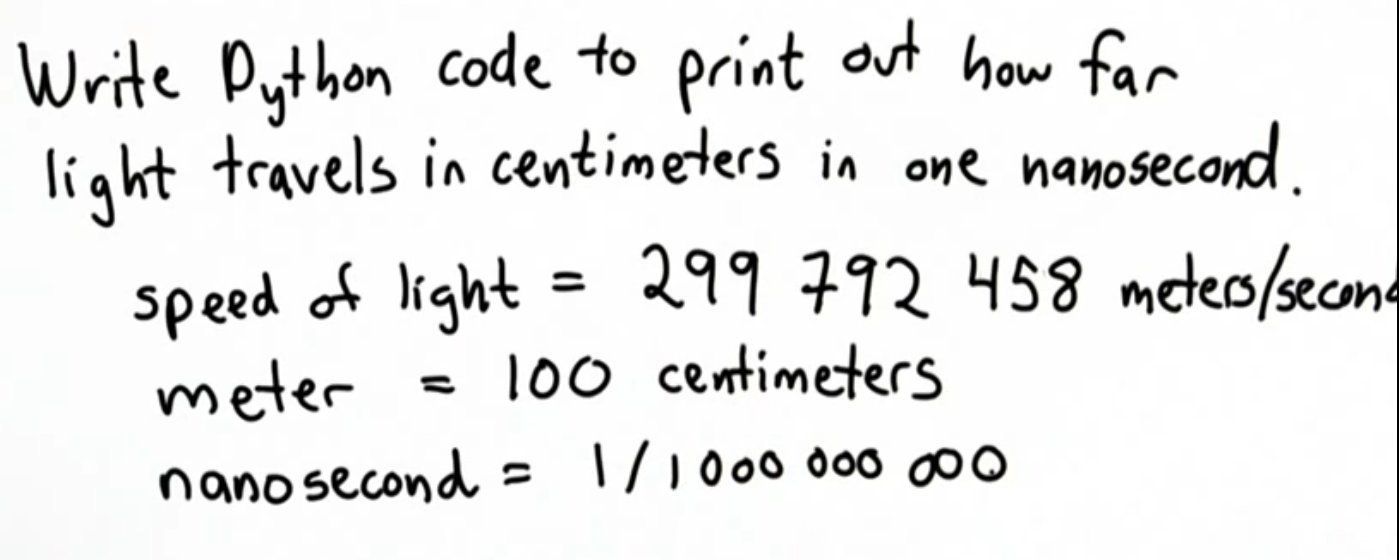 Write Python code to print out how far
light travels in centimeters in one nanosecond.
speed of light = 299 792 458 meters/secon
meter = 100 centimeters
nanosecond = 1/1000 000 000